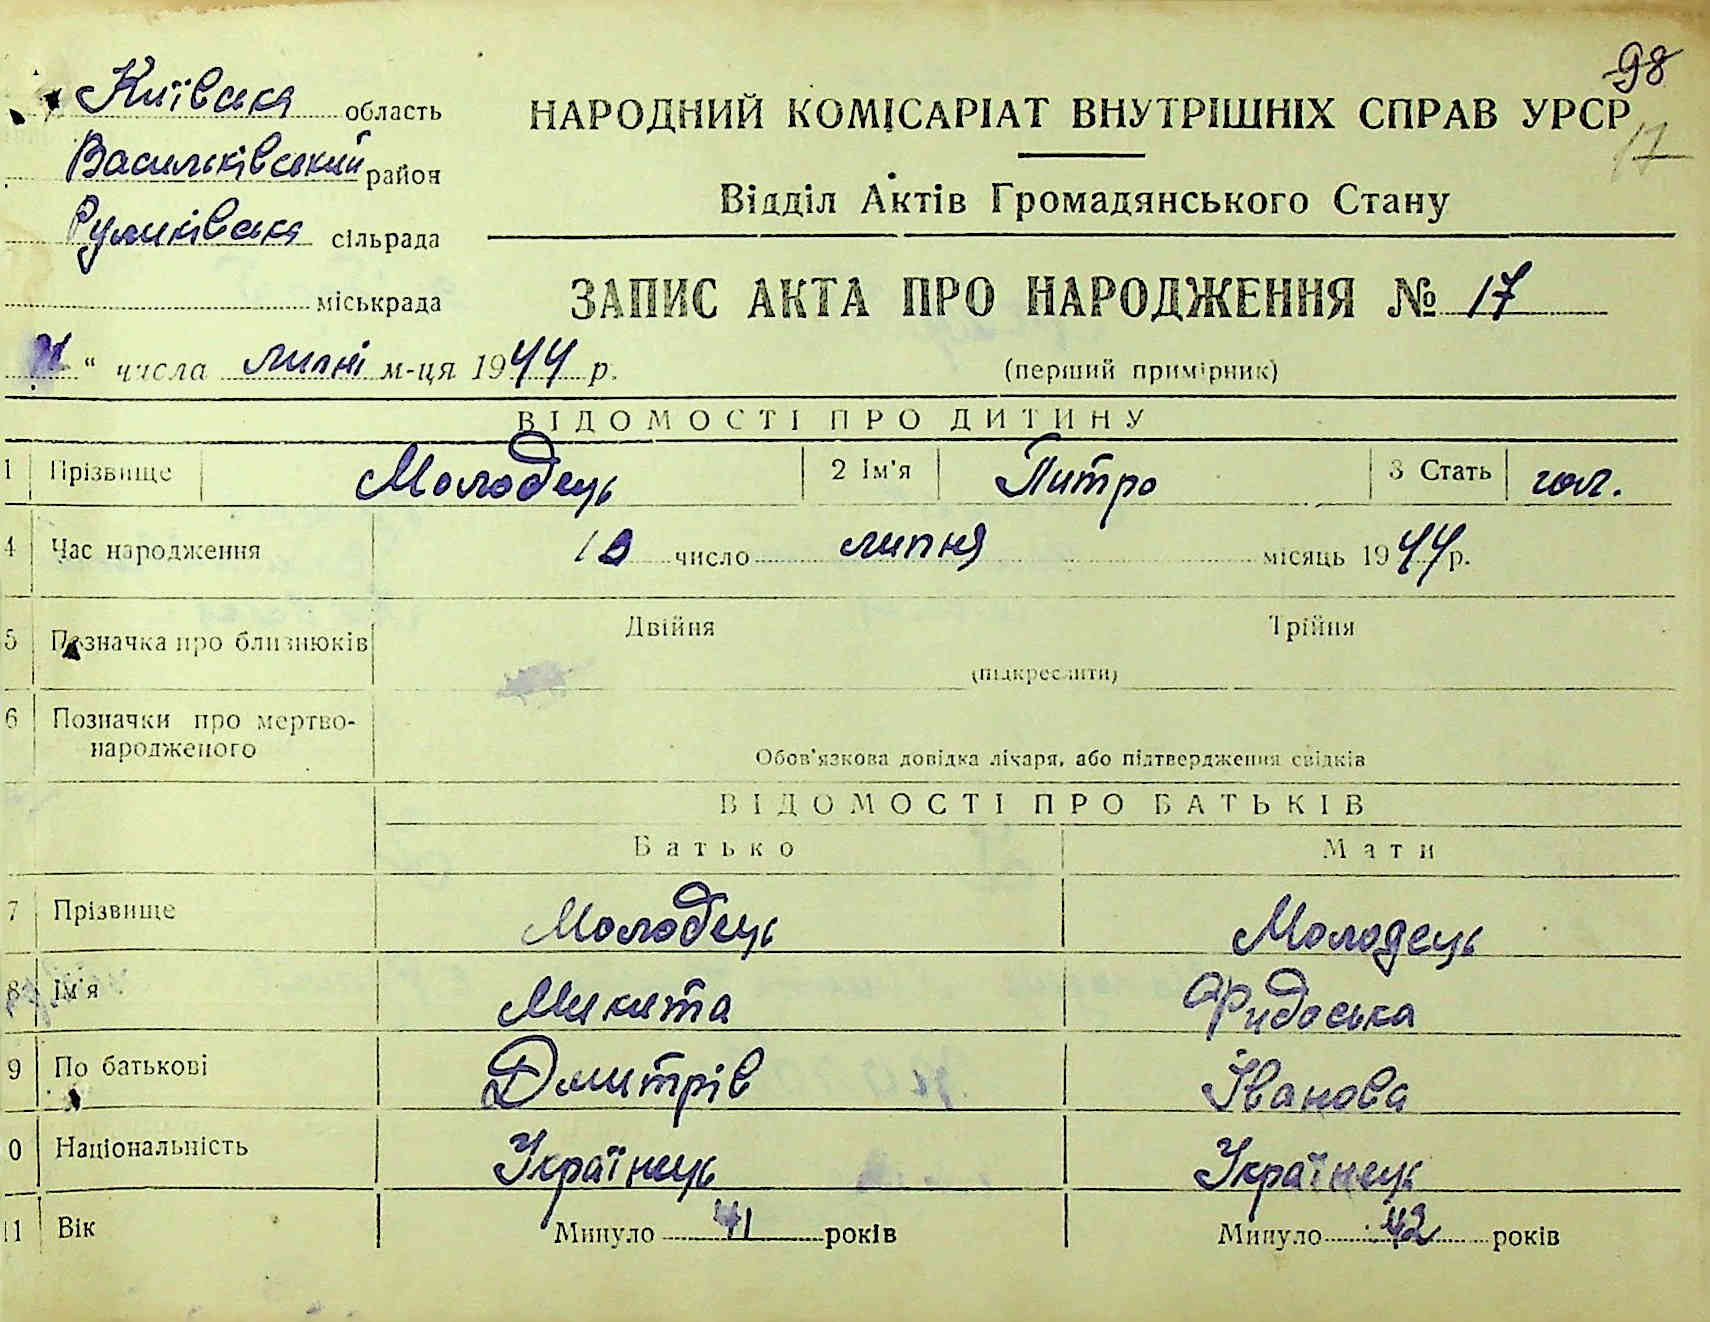 98
Київська область
НАРОДНИЙ КОМІСАРІАТ ВНУТРІШНІХ СПРАВ УРСР
17
Васильківський район
Відділ Актів Громадянського Стану
сільрада
міськрада
ЗАПИС АКТА ПРО НАРОДЖЕННЯ № 17
“ числа липні м-ця 1944 р.
(перший примірник)
ВІДОМОСТІ ПРО ДИТИНУ
1 Прізвище Молодець 2 Ім'я Питро 3 Стать чол.
4 Час народження число липня місяць 1944 р.
5 Позначка про близнюків Двійня Трійня
(підкреслити)
6 Позначки про мертво-
народженого
Обов'язкова довідка лікаря, або підтвердження свідків
ВІДОМОСТІ ПРО БАТЬКІВ
Батько Мати
7 Прізвище Молодець Молодець
8 Ім'я Микита Фидоська
9 По батькові Дмитрів Іванова
0 Національність Українець Українець
11 Вік Минуло 41 років Минуло 42 років